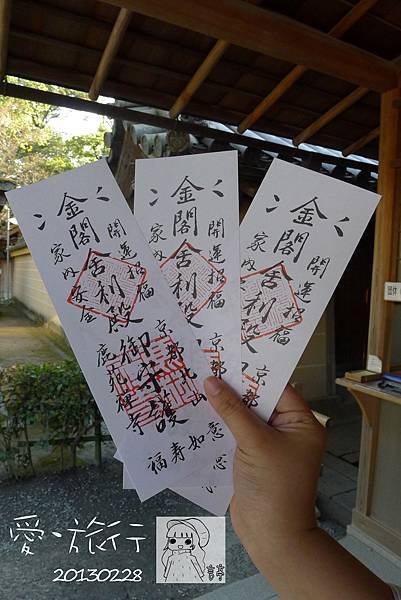 開運招福
金閣舎利殿御守護
家内安全
京都北山
鹿苑禅寺
開運招福
金閣舎利殿
家内
京都
開運招福
金閣舎利殿
家内
京
如意
福寿
団体
愛、旅行
20130228